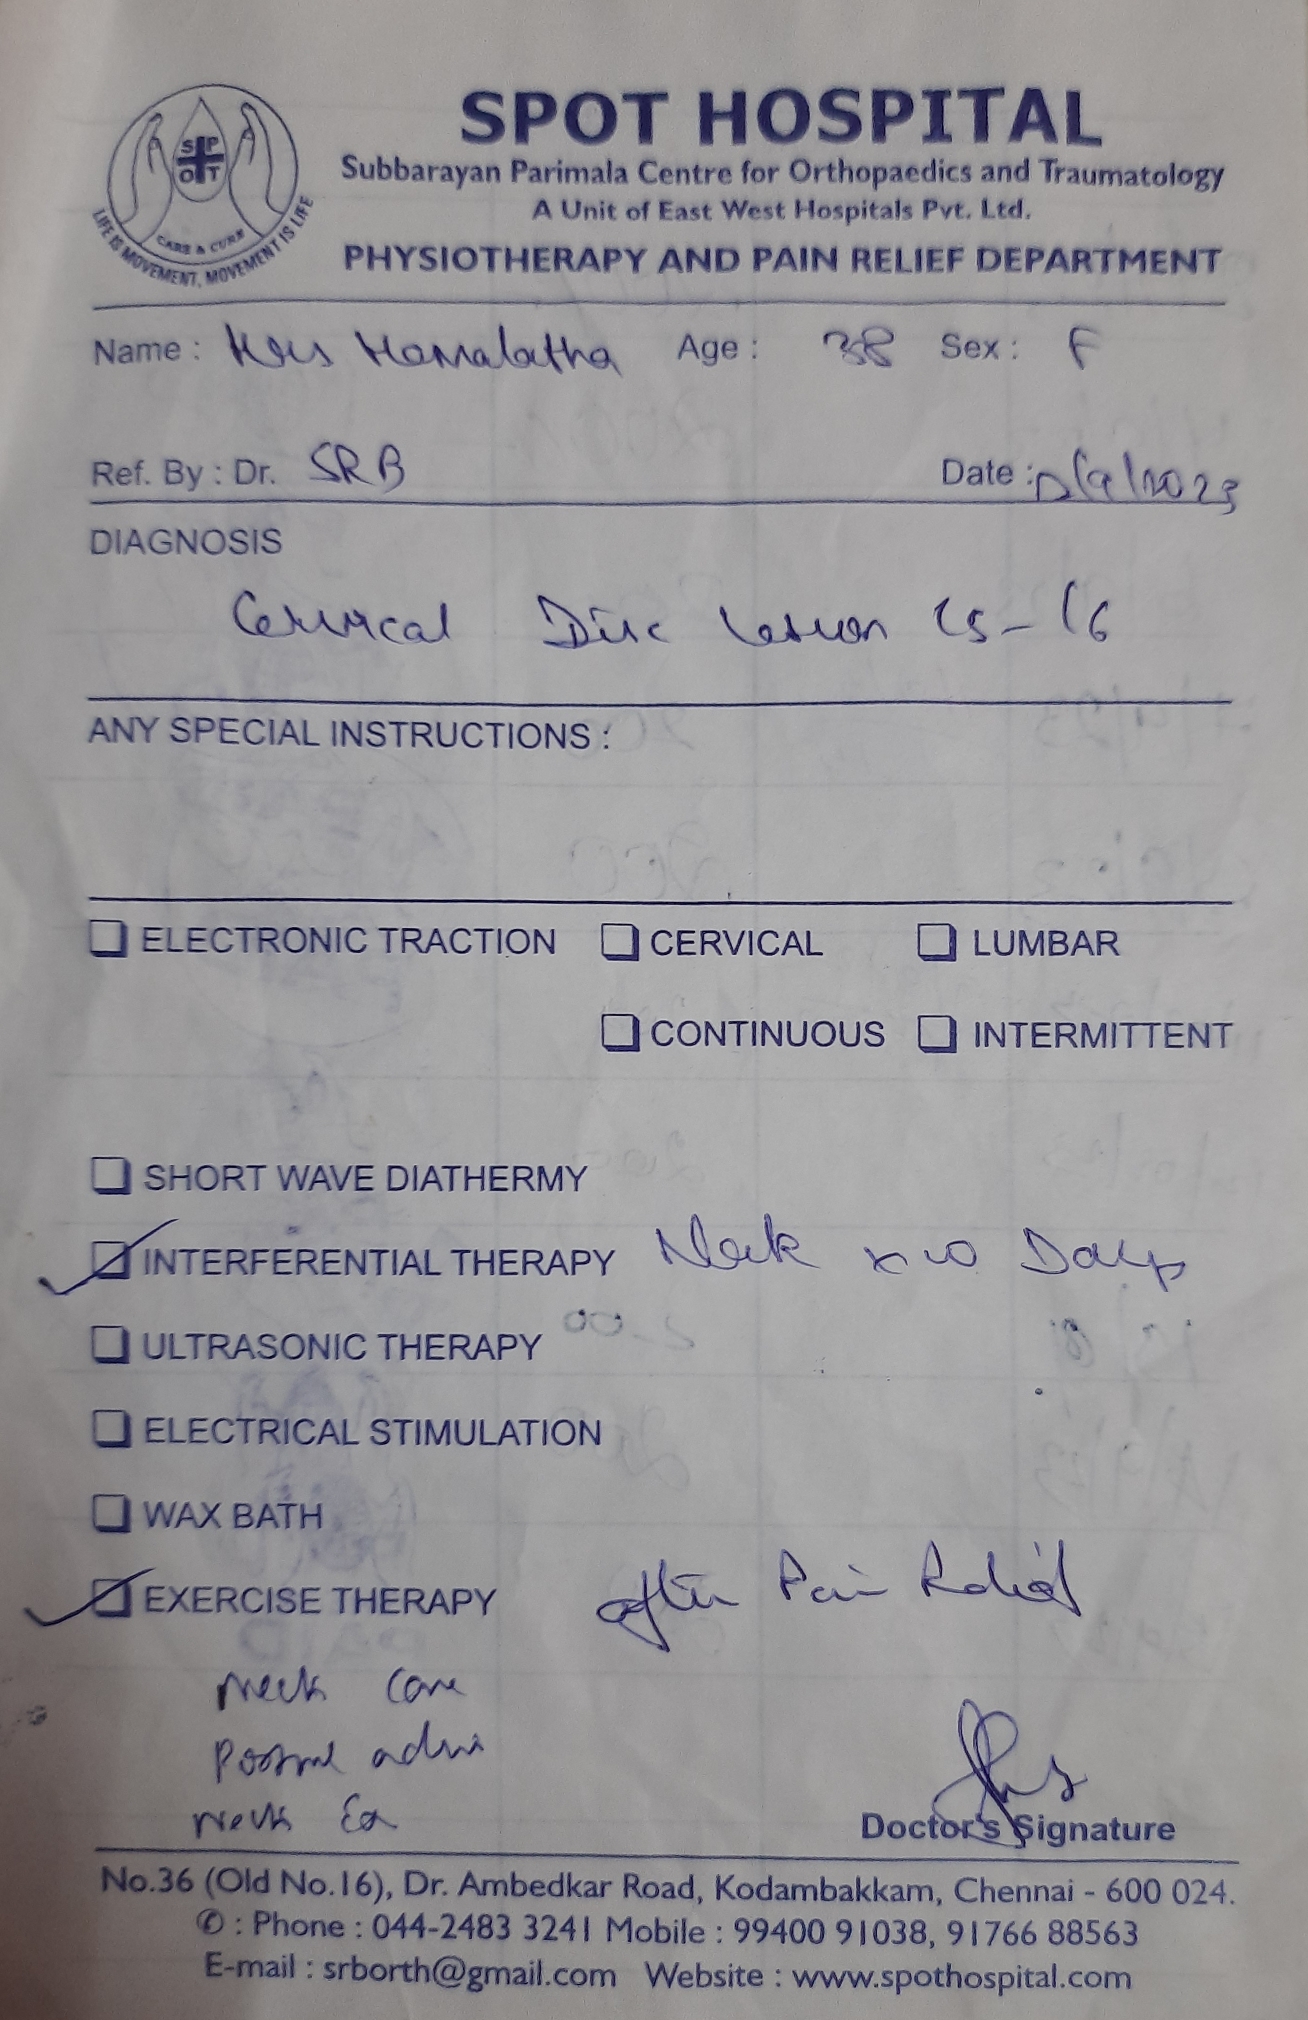 SPOT HOSPITAL
Subbarayan Parimala Centre for Orthopaedics and Traumatology
A Unit of East West Hospitals Pvt. Ltd.
PHYSIOTHERAPY AND PAIN RELIEF DEPARTMENT
S P O T
CARE & CURE
LIFE IS MOVEMENT, MOVEMENT IS LIFE
Name : Mrs Hemalatha Age : 38 Sex : F
Ref. By : Dr. SRB Date :
DIAGNOSIS
Cervical Disc Lesion C5-C6
ANY SPECIAL INSTRUCTIONS :
ELECTRONIC TRACTION CERVICAL LUMBAR
CONTINUOUS INTERMITTENT
SHORT WAVE DIATHERMY
INTERFERENTIAL THERAPY Neck x 10 Days
ULTRASONIC THERAPY
ELECTRICAL STIMULATION
WAX BATH
EXERCISE THERAPY after Pain Relief
Neck Care
Neck Ex
Doctor's Signature
No.36 (Old No.16), Dr. Ambedkar Road, Kodambakkam, Chennai - 600 024.
✆ : Phone : 044-2483 3241 Mobile : 99400 91038, 91766 88563
E-mail : srborth@gmail.com Website : www.spothospital.com